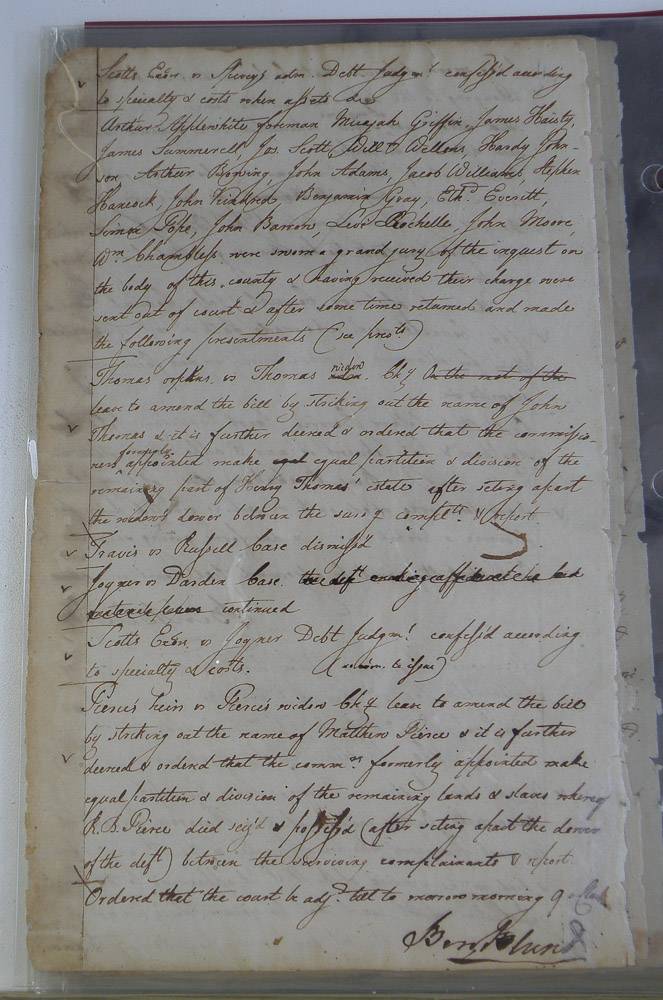 Scotts Exōr. vs Spivey's adm. Debt. Judgmt. confess'd according
to specialty & costs when assets &c
Arthur Applewhite foreman Micajah Griffin, James Haisty,
James Summerell Jos. Scott, Will Wellons, Hardy John-
son, Arthur Bowing, John Adams, Jacob Williams, Stephen
Hancock, John Kindred, Benjamin Gray, Ethd. Everitt,
Simon Pope, John Barron, Levi Rochelle, John Moore,
Wm. Chambless were sworn a grand jury of the inquest on
the body of this county & having received their charge were
sent out of court & after some time returned and made
the following presentments (see prests)
Thomas orphns. vs Thomas widow. Chy On the mot. of the
leave to amend the bill by striking out the name of John
Thomas & it is further decreed & ordered that the commissio-
ners formerly appointed make equal partition & division of the
remaining part of Henry Thomas' estate after seting apart
the widow's dower between the surv'g complts. & report.
Travis vs Russell Case dismiss'd
Joyner vs Darden Case. the deft making affidavit he had
continued
Scotts Exōr. vs Joyner Debt Judgmt. confess'd according
to specialty & costs. (to issue)
Pierce's heirs vs Pierce's widow Chy leave to amend the bill
by striking out the name of Matthew Pierce & it is further
decreed & ordered that the commrs formerly appointed make
equal partition & division of the remaining lands & slaves whereof
R. B. Pierce died seiz'd & possess'd (after seting apart the dower
of the deft) between the surviving complainants & report.
Ordered that the court be adjd. till to morrow morning 9 oClock
Benj Blunt